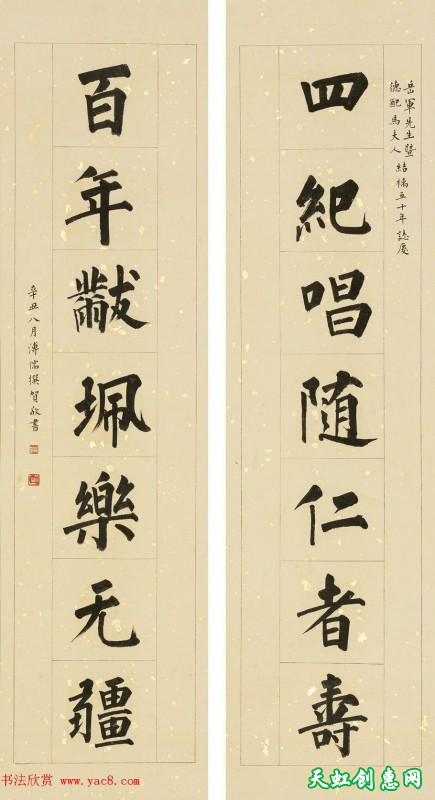 岳軍先生暨
德配馬夫人結褵五十年誌慶
四紀唱随仁者壽
百年黻珮樂无疆
辛丑八月溥儒撰賀敬書
书法欣赏 www.yac8.com
天虹创意网